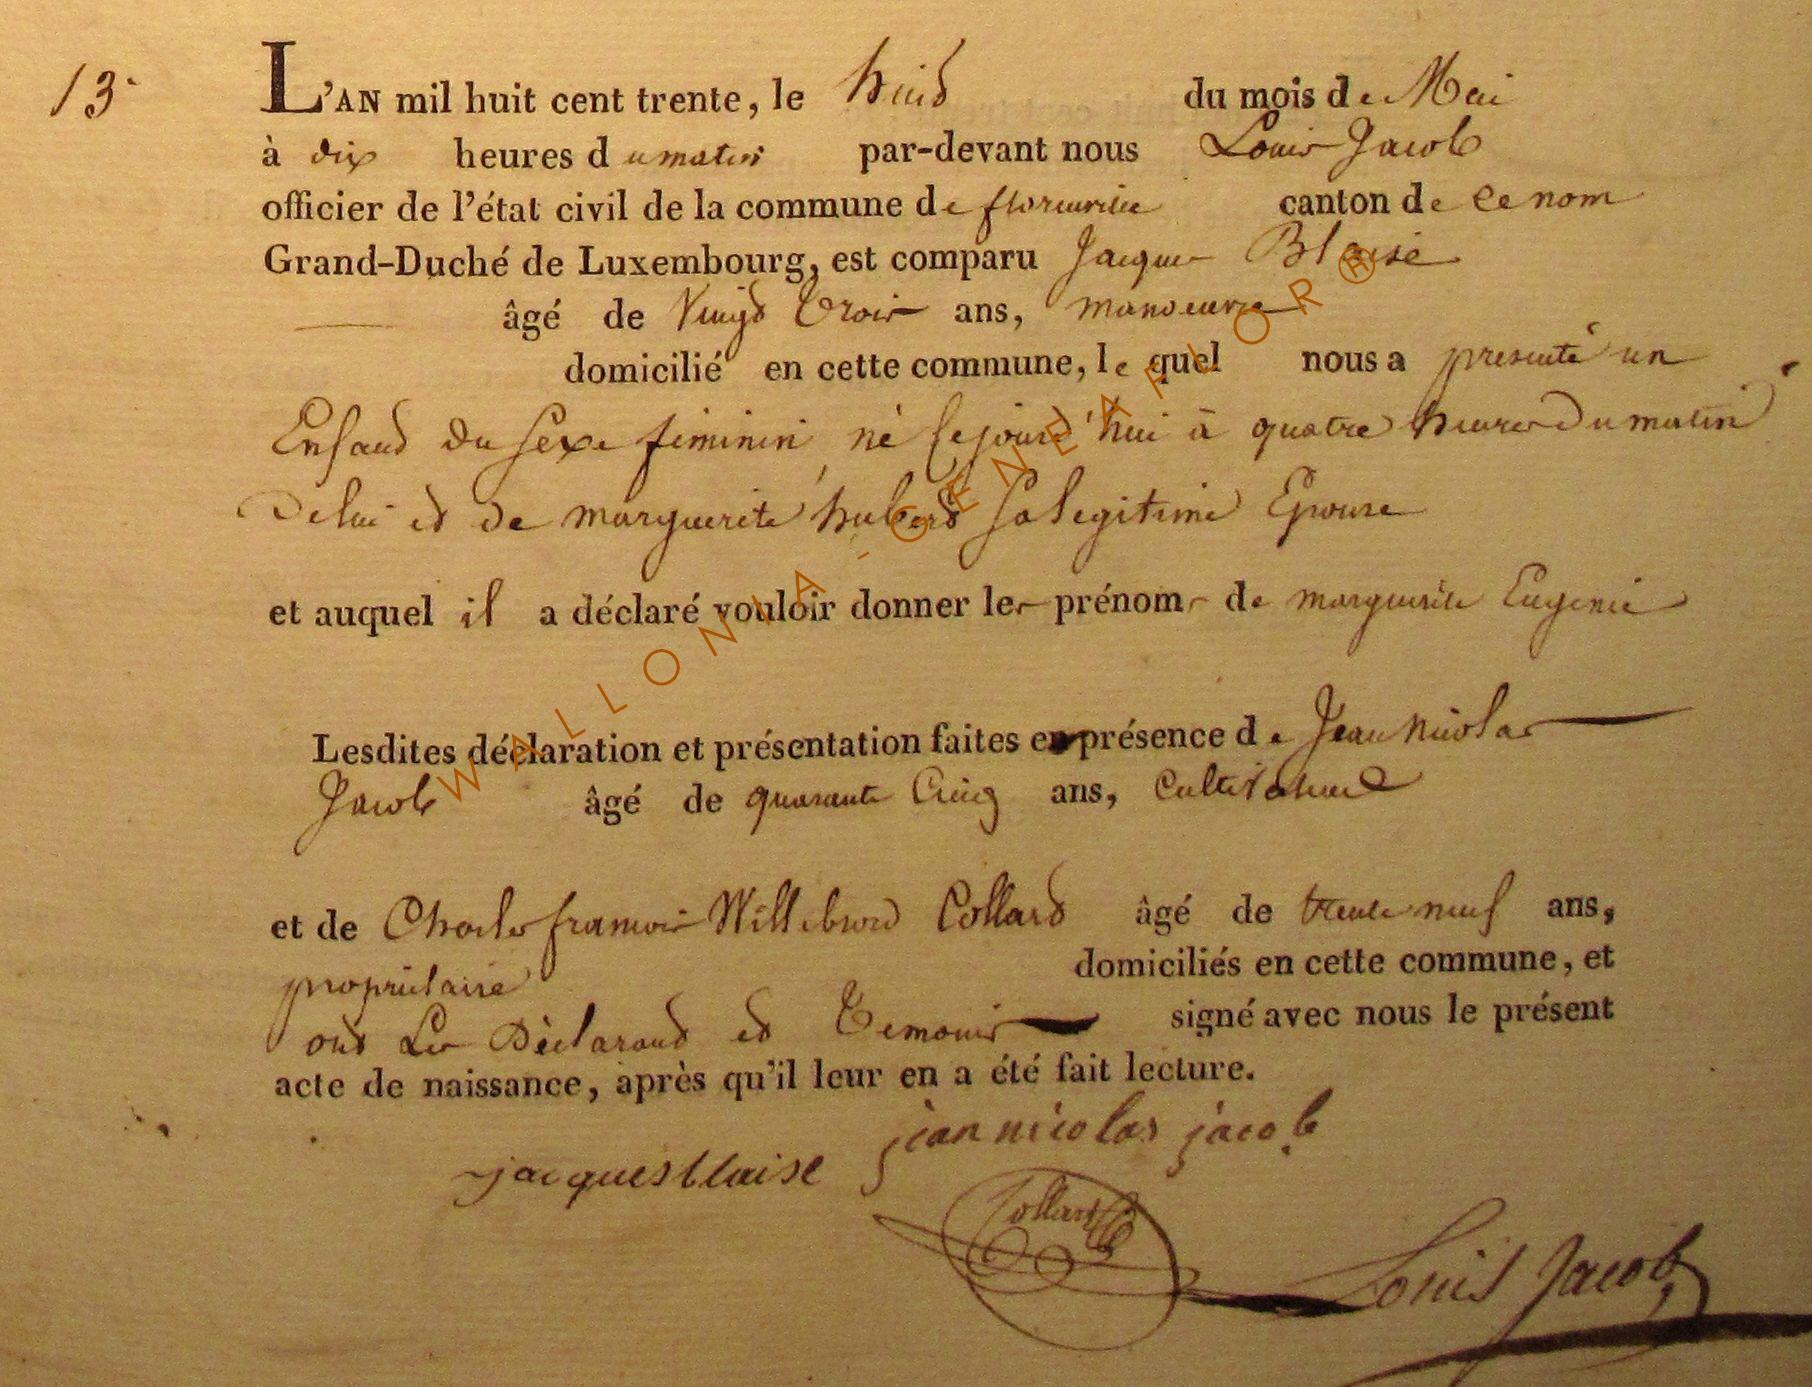 13.
L'AN mil huit cent trente, le huid du mois de Mai
à dix heures du matin par-devant nous Louis Jacob
officier de l'état civil de la commune de florenville canton de ce nom
Grand-Duché de Luxembourg, est comparu Jacques Blaise
âgé de Vingd trois ans, manoeuvre
domicilié en cette commune, le quel nous a presenté un
Enfand du sexe feminin né cejourd'hui à quatre heures du matin
De lui ed de marguerite huberd sa legitime Epouse
et auquel il a déclaré vouloir donner les prénoms de marguerite Eugenie
Lesdites déclaration et présentation faites en présence de Jean Nicolas
Jacob âgé de quarante Cinq ans, Cultivateur
et de Charles francois Willibrord Collard âgé de trente neuf ans,
propriétaire domiciliés en cette commune, et
ond Les Déclarand ed Temoins signé avec nous le présent
acte de naissance, après qu'il leur en a été fait lecture.
jean nicolas jacob
jacques blaise
Collard
Louis Jacob
WALLONIA-GENEAFLOR®